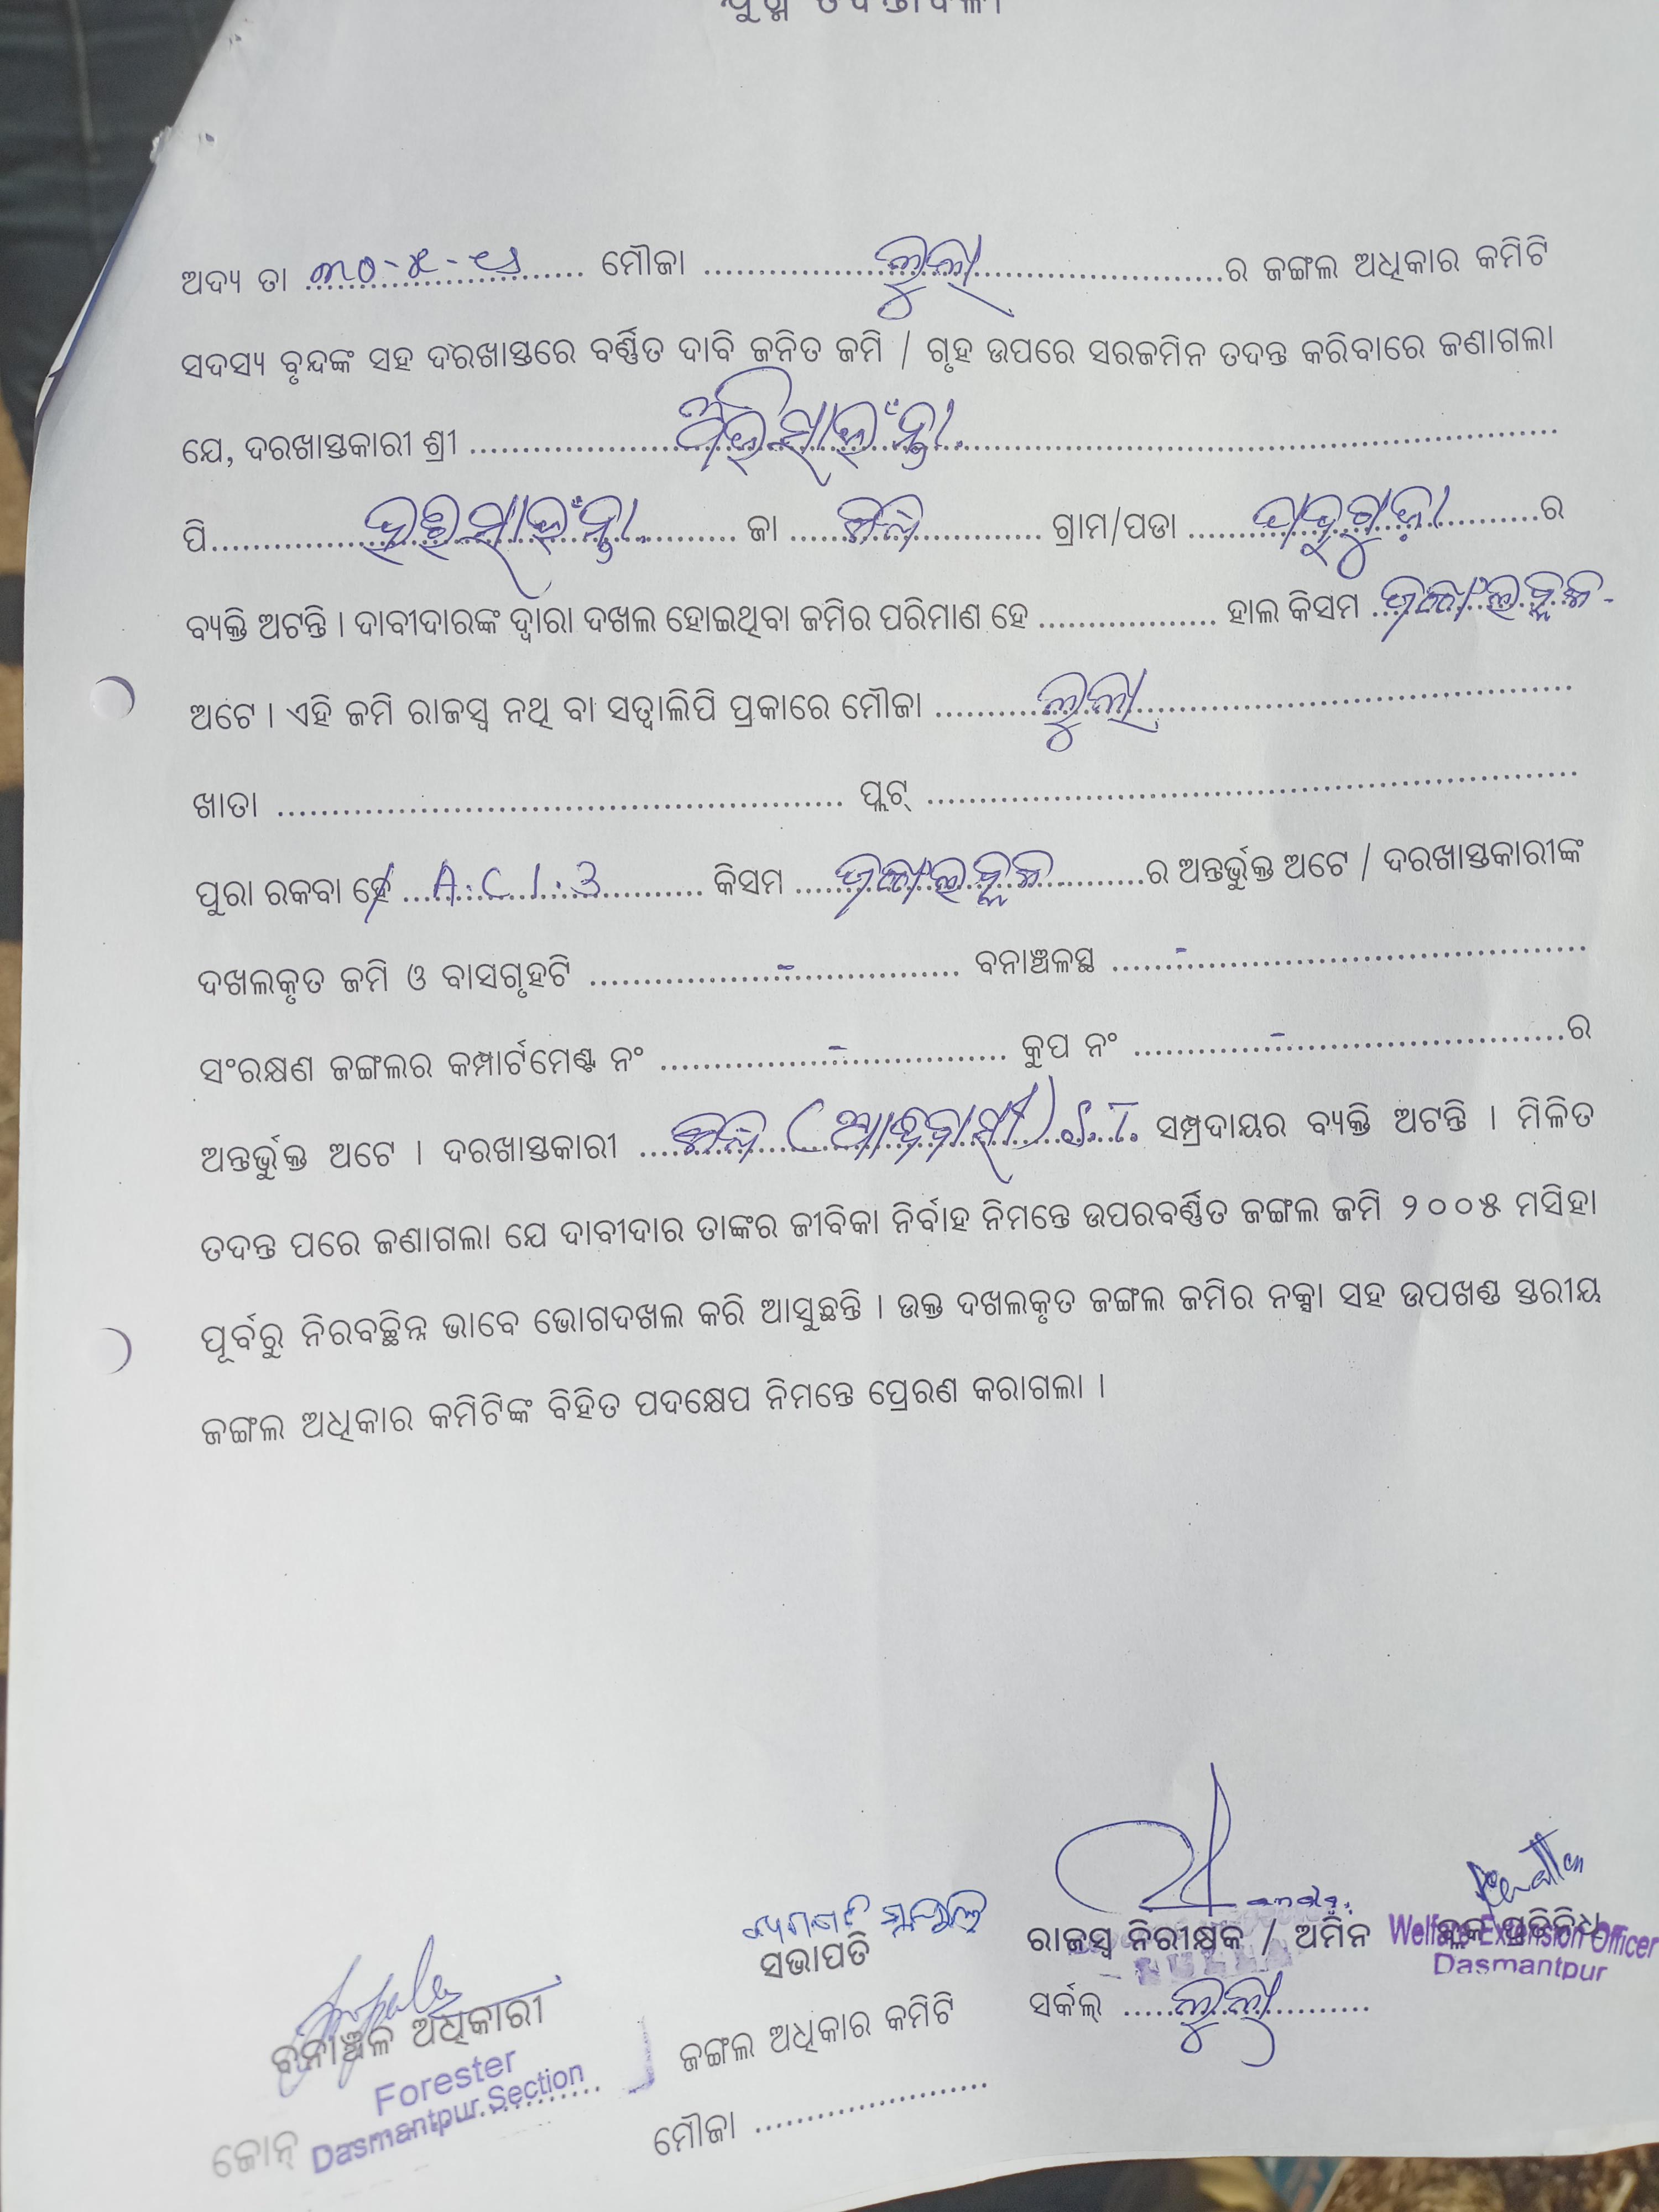 ଅଦ୍ୟ ତା ୩୦-୪-୧୬ ମୌଜା ଲୁଲା ର ଜଙ୍ଗଲ ଅଧିକାର କମିଟି
ସଦସ୍ୟ ବୃନ୍ଦଙ୍କ ସହ ଦରଖାସ୍ତରେ ବର୍ଣ୍ଣିତ ଦାବି ଜନିତ ଜମି / ଗୃହ ଉପରେ ସରଜମିନ ତଦନ୍ତ କରିବାରେ ଜଣାଗଲା
ଯେ, ଦରଖାସ୍ତକାରୀ ଶ୍ରୀ
ପି ଜା ଗ୍ରାମ/ପଡା ର
ବ୍ୟକ୍ତି ଅଟନ୍ତି । ଦାବୀଦାରଙ୍କ ଦ୍ୱାରା ଦଖଲ ହୋଇଥିବା ଜମିର ପରିମାଣ ହେ .................. ହାଲ କିସମ
ଅଟେ । ଏହି ଜମି ରାଜସ୍ୱ ନଥି ବା ସତ୍ୱାଲିପି ପ୍ରକାରେ ମୌଜା ଲୁଲା
ଖାତା .................................................. ପ୍ଲଟ୍ ..................................................
ପୁରା ରକବା ହେ / A.C 1.3 କିସମ ର ଅନ୍ତର୍ଭୁକ୍ତ ଅଟେ / ଦରଖାସ୍ତକାରୀଙ୍କ
ଦଖଲକୃତ ଜମି ଓ ବାସଗୃହଟି - ବନାଞ୍ଚଳସ୍ଥ -
ସଂରକ୍ଷଣ ଜଙ୍ଗଲର କମ୍ପାର୍ଟମେଣ୍ଟ ନଂ - କୁପ ନଂ - ର
ଅନ୍ତର୍ଭୁକ୍ତ ଅଟେ । ଦରଖାସ୍ତକାରୀ (ଆଦିବାସୀ) S.T. ସମ୍ପ୍ରଦାୟର ବ୍ୟକ୍ତି ଅଟନ୍ତି । ମିଳିତ
ତଦନ୍ତ ପରେ ଜଣାଗଲା ଯେ ଦାବୀଦାର ତାଙ୍କର ଜୀବିକା ନିର୍ବାହ ନିମନ୍ତେ ଉପରବର୍ଣ୍ଣିତ ଜଙ୍ଗଲ ଜମି ୨୦୦୫ ମସିହା
ପୂର୍ବରୁ ନିରବଚ୍ଛିନ୍ନ ଭାବେ ଭୋଗଦଖଲ କରି ଆସୁଛନ୍ତି । ଉକ୍ତ ଦଖଲକୃତ ଜଙ୍ଗଲ ଜମିର ନକ୍ସା ସହ ଉପଖଣ୍ଡ ସ୍ତରୀୟ
ଜଙ୍ଗଲ ଅଧିକାର କମିଟିଙ୍କ ବିହିତ ପଦକ୍ଷେପ ନିମନ୍ତେ ପ୍ରେରଣ କରାଗଲା ।
ରାଜସ୍ୱ ନିରୀକ୍ଷକ / ଅମିନ ବ୍ଲକ ପ୍ରତିନିଧି
Welfare Extension Officer
Dasmantpur
ସର୍କଲ୍ ଲୁଲା
ସଭାପତି
ଜଙ୍ଗଲ ଅଧିକାର କମିଟି
ମୌଜା ....................
ବନାଞ୍ଚଳ ଅଧିକାରୀ
Forester
Dasmantpur Section
ଜୋନ୍